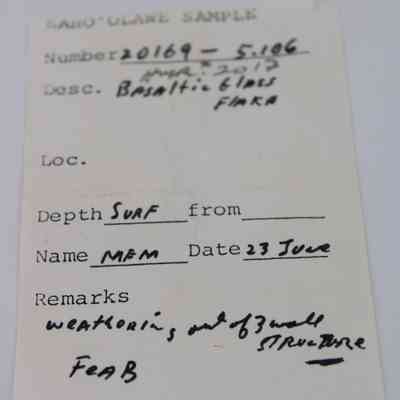 KAHO'OLAWE SAMPLE
Number 20169 - 5.106
2017
Desc. Basaltic Glass
Flaka
Loc.
Depth SURF from
Name MFM Date 23 June
Remarks
weathering out of 3 wall
STRUCTURE
FeaB